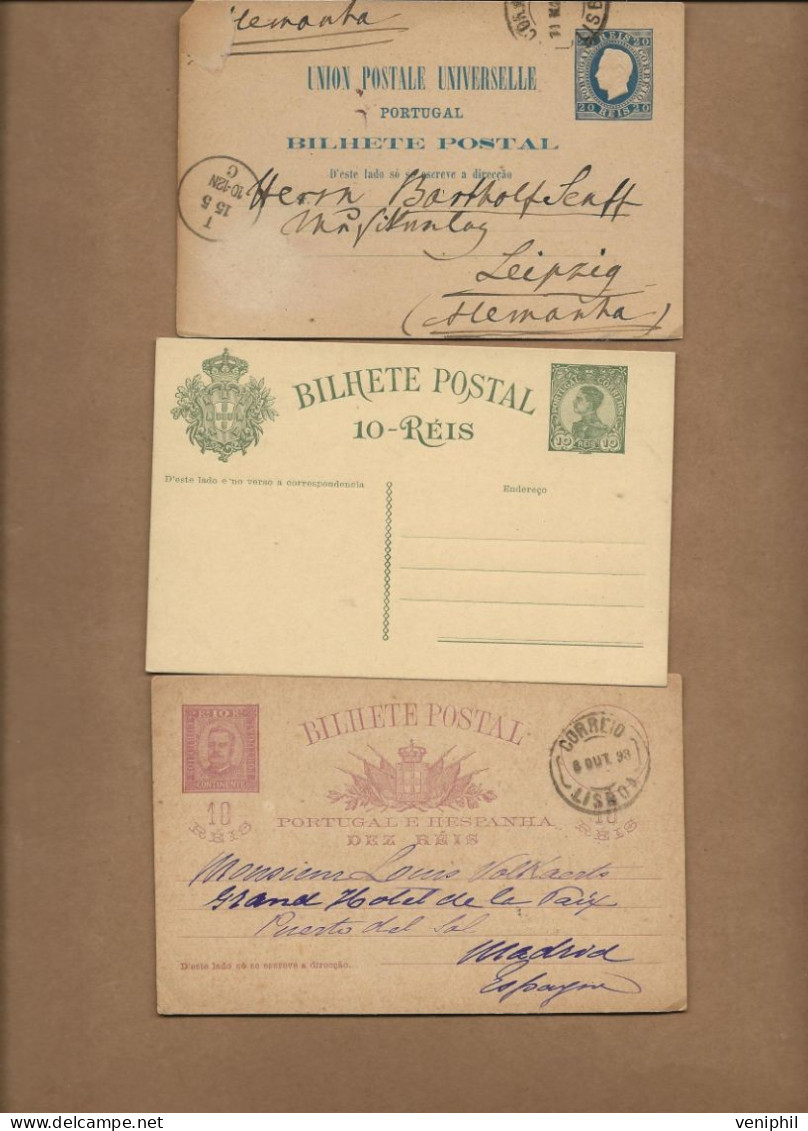 Alemanha
UNION POSTALE UNIVERSELLE
PORTUGAL
BILHETE POSTAL
D'este lado só se escreve a direcção
20 20
PORTUGAL REIS CORREIO
20 REIS 20
T
15 5
10-12N
C
Herrn Bartholf Senff
Leipzig
(Alemanha)
BILHETE POSTAL
10-RÉIS
PORTUGAL CORREIO
10 REIS 10
D'este lado e no verso a correspondencia
Endereço
BILHETE POSTAL
CONTINENTE
10
RÉIS
CORREIO
8 OUT. 93
LISBOA
10
RÉIS
PORTUGAL E HESPANHA
DEZ RÉIS
Monsieur Louis
Grand Hotel de la Paix
Puerto del Sol
Madrid
D'este lado só se escreve a direcção.
Espagne
veniphil